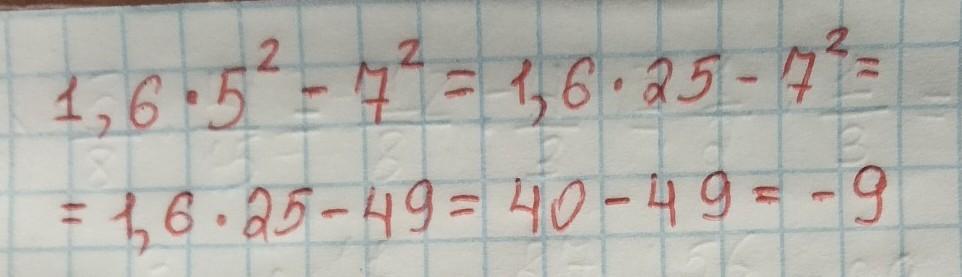 1,6·5² - 7² = 1,6·25 - 7² =
= 1,6·25 - 49 = 40 - 49 = -9